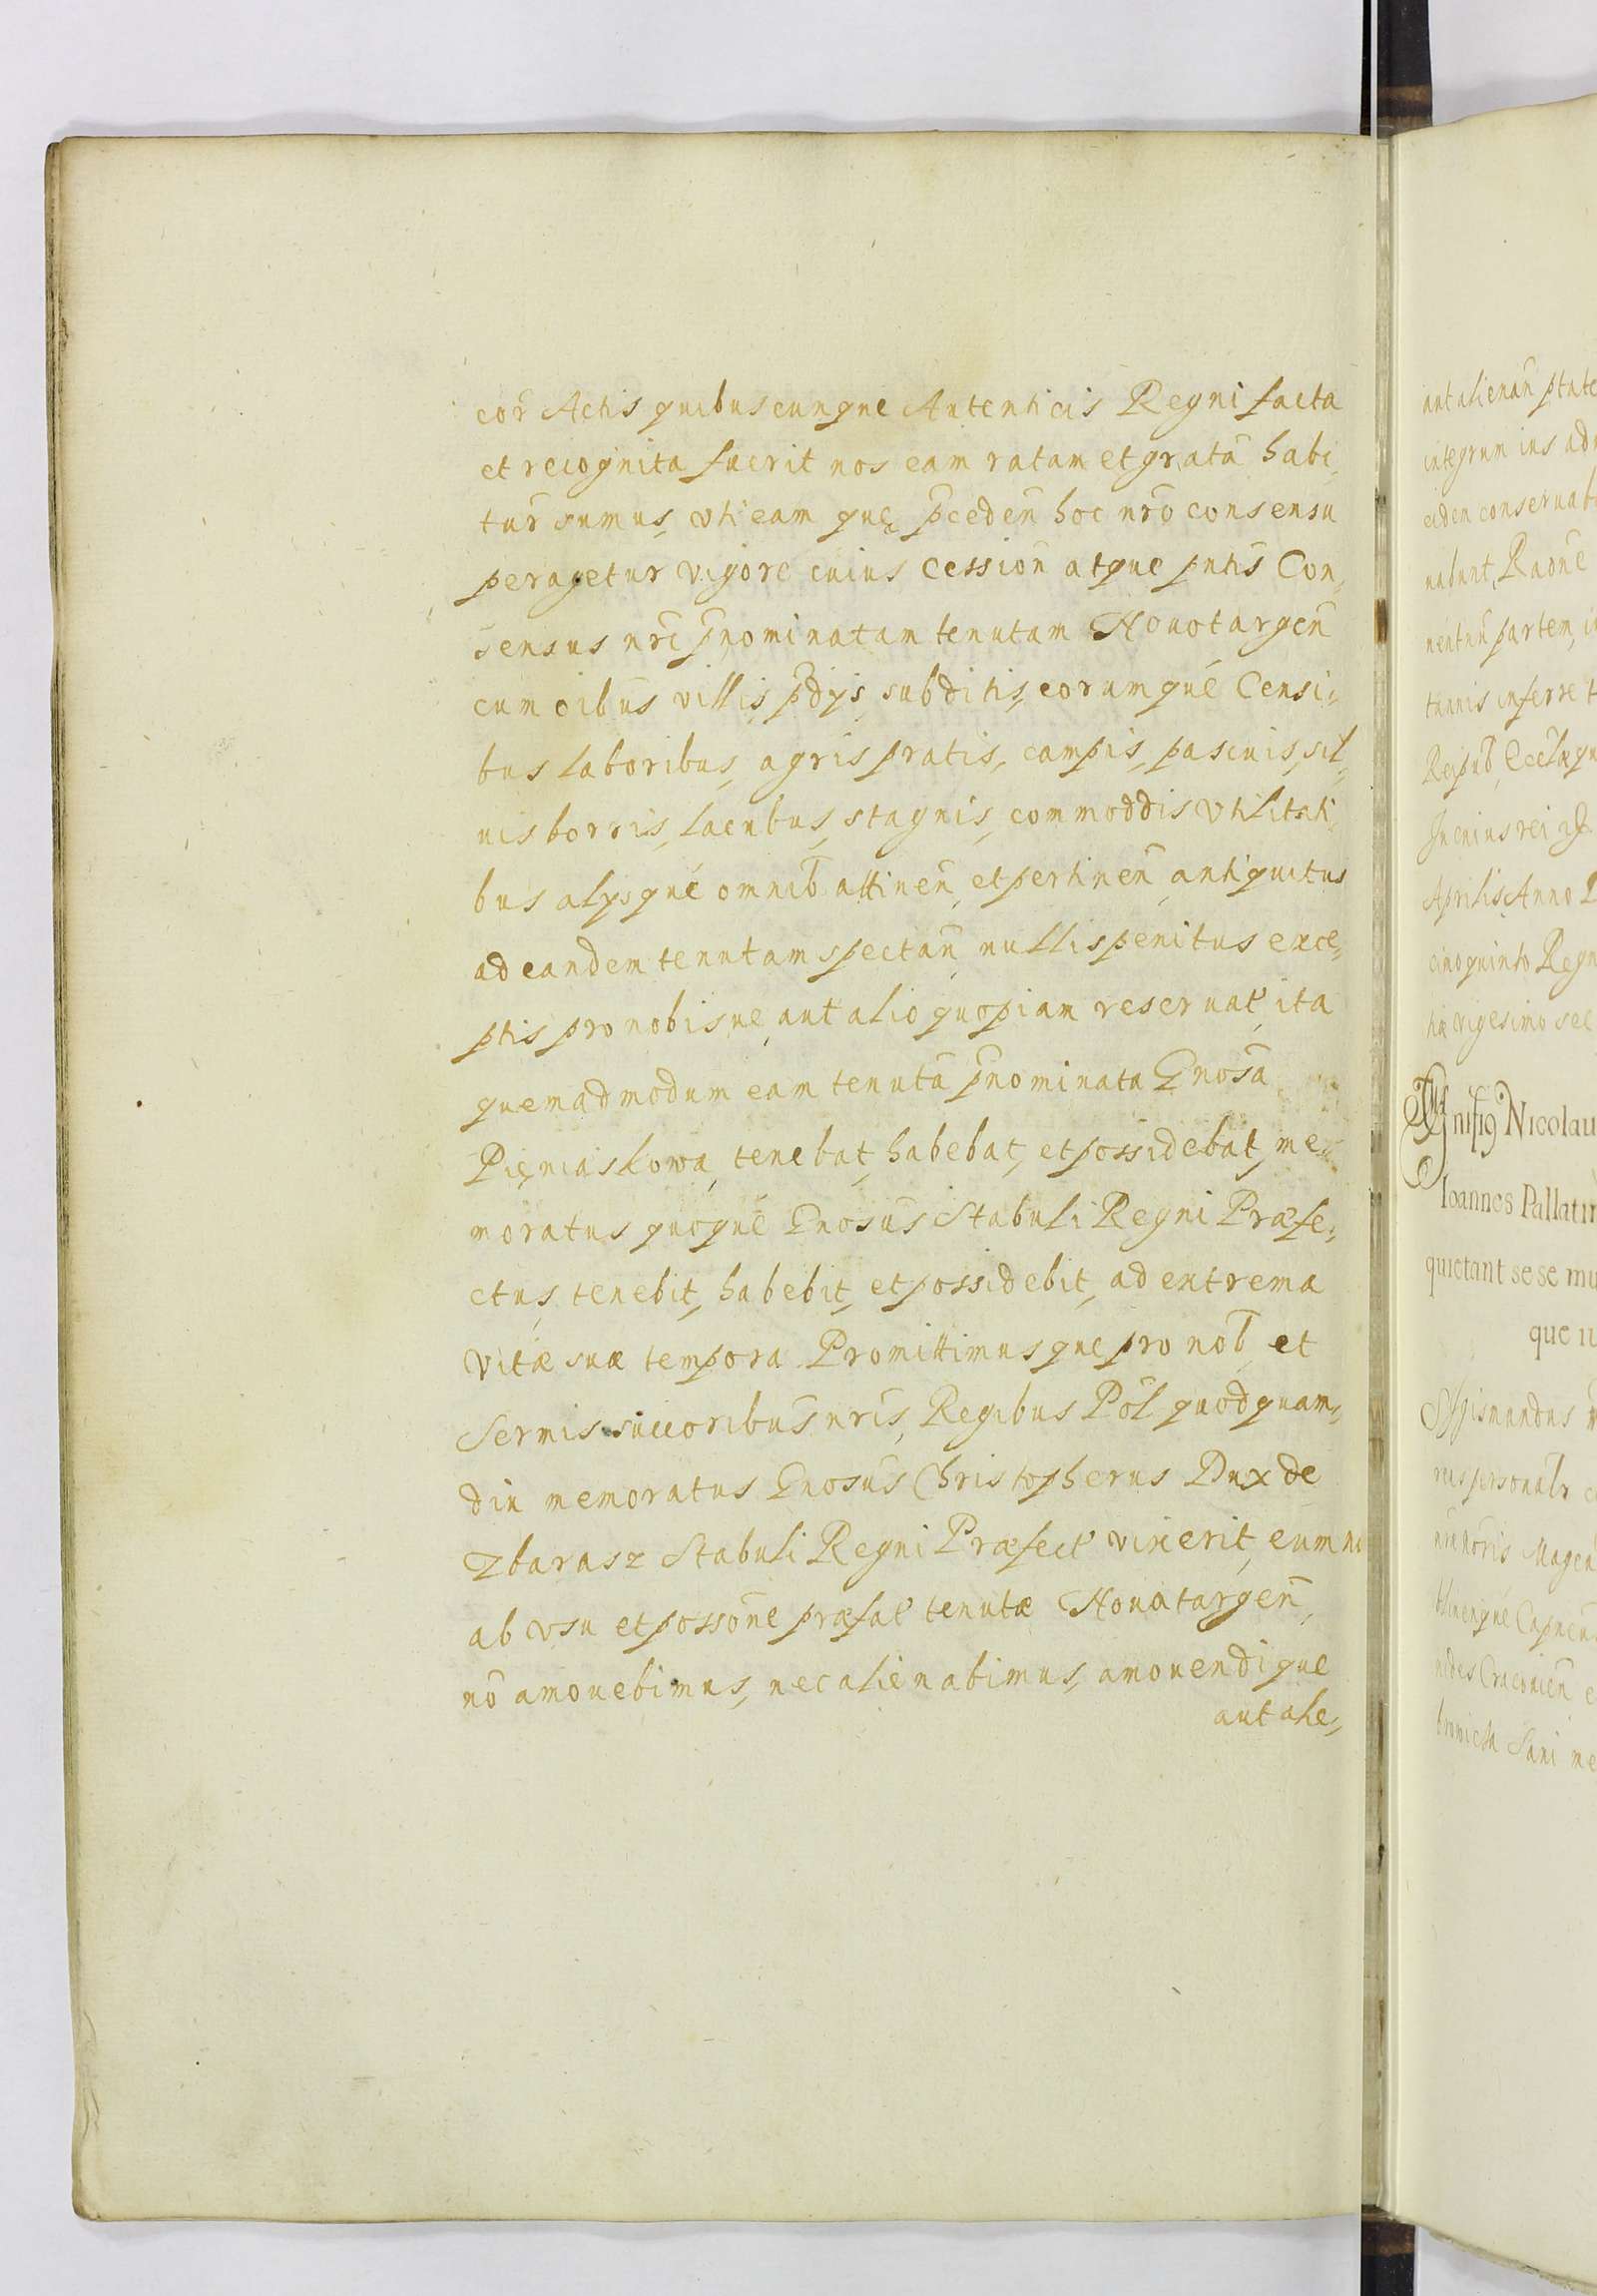 cor̃ Actis quibuscunque Autenticis Regni facta
et recognita fuerit nos eam ratam et gratã habi„
tur̃ sumus, vti eam quę p̃ceden̄ hoc nr̃o consensu
peragetur vigore cuius Cession̄ atque pntis̄ Con„
sensus nr̃i p̃nominatam tenutam Nouotargen̄
cum oibus̃ villis, p̃dys, subditis, eorumqué Censi„
bus laboribus, agris pratis, campis, pascuis, sil„
uis borris, lacubus, stagnis, commoddis vtilitati„
bus alysqué omnib̃ attinen̄, et pertinen̄, antiquitus
ad eandem tenutam spectan̄, nullis penitus exce„
ptis pro nobisue, aut alio quopiam reseruat̃, ita
quemadmodum eam tenutã p̃nominata Gnosã
Pięniaskowa, tenebat, habebat, et possidebat, me„
moratus quoqué Gnosus̃ Stabuli Regni Præfe„
ctus, tenebit, habebit, et possidebit, ad extrema
vitæ suæ tempora. Promittimusque pro nob̃, et
Sermis succoribus̃ nr̃is, Regibus Pol̃ quod quam„
diu memoratus Gnosus̃ Christopherus Dux de
Zbarasz Stabuli Regni Præfect̃ vixerit, eum
ab vsu et possoñe præfat̃ tenutæ Nouatargen̄,
nõ amouebimus, nec alienabimus, amouendique
aut alie„
aut alienan̄
integrum ius
eidem
nabunt, Raoñe
partem,
inferre
In cuius rei
Aprilis, Anno
quinto Regn
vigesimo
Nicolau
Ioannes Pallatin
quietant sese mu
que
Sigismundus